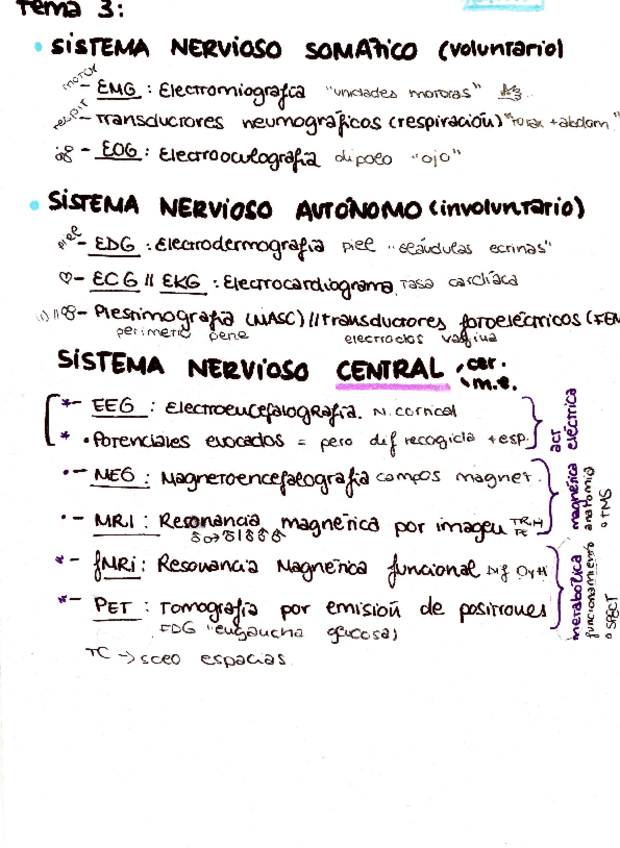 Tema 3:
SISTEMA NERVIOSO SOMATICO (voluntario)
motor - EMG : Electromiografica "unidades motoras"
respit - Transductores neumográficos (respiración) "torax + abdom"
- EOG : Electrooculografia dipolo "ojo"
SISTEMA NERVIOSO AUTÓNOMO (involuntario)
piel - EDG : Electrodermografia piel "glándulas ecrinas"
♡ - ECG // EKG : Electrocardiograma, Tasa cardíaca
- Plestimografia (VASC) // transductores fotoeléctricos (FEM
perimetro pene electrodos vagina
SISTEMA NERVIOSO CENTRAL cer.
m.e.
*- EEG : Electroencefalografia. N. cortical
* • Potenciales evocados = pero dif recogida + esp.
act eléctrica
•- MEG : Magnetoencefalografia campos magnet.
•- MRI : Resonancia magnética por imagen
magnética
anatomia
o TMS
*- fMRi : Resonancia Magnética funcional
*- PET : Tomografia por emisión de positrones
FDG "engancha glucosa)
metabólica
funcionamiento
o SPECT
TC → sceo espacias